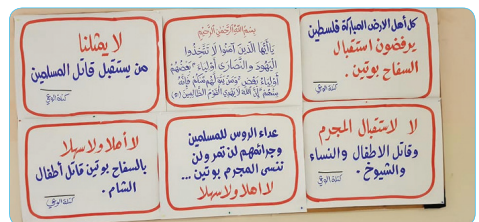 كل أهل الارض المباركة فلسطين
يرفضون استقبال
السفاح بوتين .
كتلة الوعي
بسم الله الرحمن الرحيم
يا أيها الذين آمنوا لا تتخذوا
اليهود والنصارى أولياء بعضهم
أولياء بعض ومن يتولهم منكم فإنه
منهم إن الله لا يهدي القوم الظالمين (٥١)
لا يمثلنا
من يستقبل قاتل المسلمين
كتلة الوعي
لا لاستقبال المجرم
وقاتل الاطفال والنساء
والشيوخ .
كتلة الوعي
عداء الروس للمسلمين
وجرائمهم لن تمر ولن
ننسى المجرم بوتين ...
لا اهلا ولا سهلا
لا أهلا ولا سهلا
بالسفاح بوتين قاتل أطفال
الشام .
كتلة الوعي